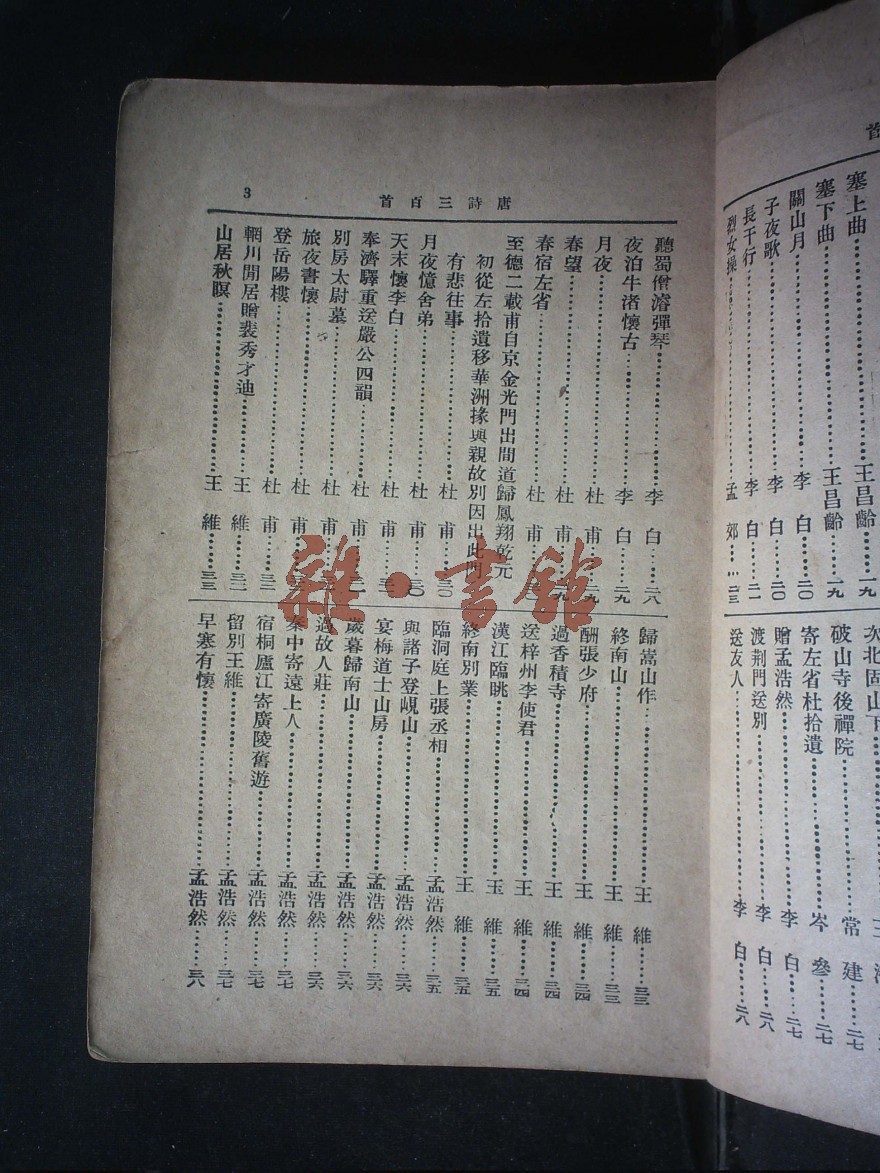 唐詩三百首
3
聽蜀僧濬彈琴 李白 二八
夜泊牛渚懷古 李白 二九
月夜 杜甫 二九
春望 杜甫 二九
春宿左省 杜甫
至德二載甫自京金光門出間道歸鳳翔乾元
初從左拾遺移華洲掾與親故別因出此門
有悲往事 杜甫 三〇
月夜憶舍弟 杜甫 三〇
天末懷李白 杜甫
奉濟驛重送嚴公四韻 杜甫
別房太尉墓 杜甫
旅夜書懷 杜甫
登岳陽樓 杜甫 三二
輞川閒居贈裴秀才迪 王維 三二
山居秋暝 王維 三三
歸嵩山作 王維 三三
終南山 王維 三三
酬張少府 王維 三四
過香積寺 王維 三四
送梓州李使君 王維 三四
漢江臨眺 王維 三五
終南別業 王維 三五
臨洞庭上張丞相 孟浩然 三五
與諸子登峴山 孟浩然 三六
宴梅道士山房 孟浩然 三六
歲暮歸南山 孟浩然 三六
過故人莊 孟浩然 三六
秦中寄遠上人 孟浩然 三七
宿桐廬江寄廣陵舊遊 孟浩然 三七
留別王維 孟浩然 三七
早寒有懷 孟浩然 三八
首
塞上曲 王昌齡 一九
塞下曲 王昌齡 一九
關山月 李白 二〇
子夜歌 李白 二〇
長干行 李白 二一
烈女操 孟郊 二三
次北固山下 王
破山寺後禪院 常建 二七
寄左省杜拾遺 岑參 二七
贈孟浩然 李白 二七
渡荆門送別 李白 二八
送友人 李白 二八
雜·書館